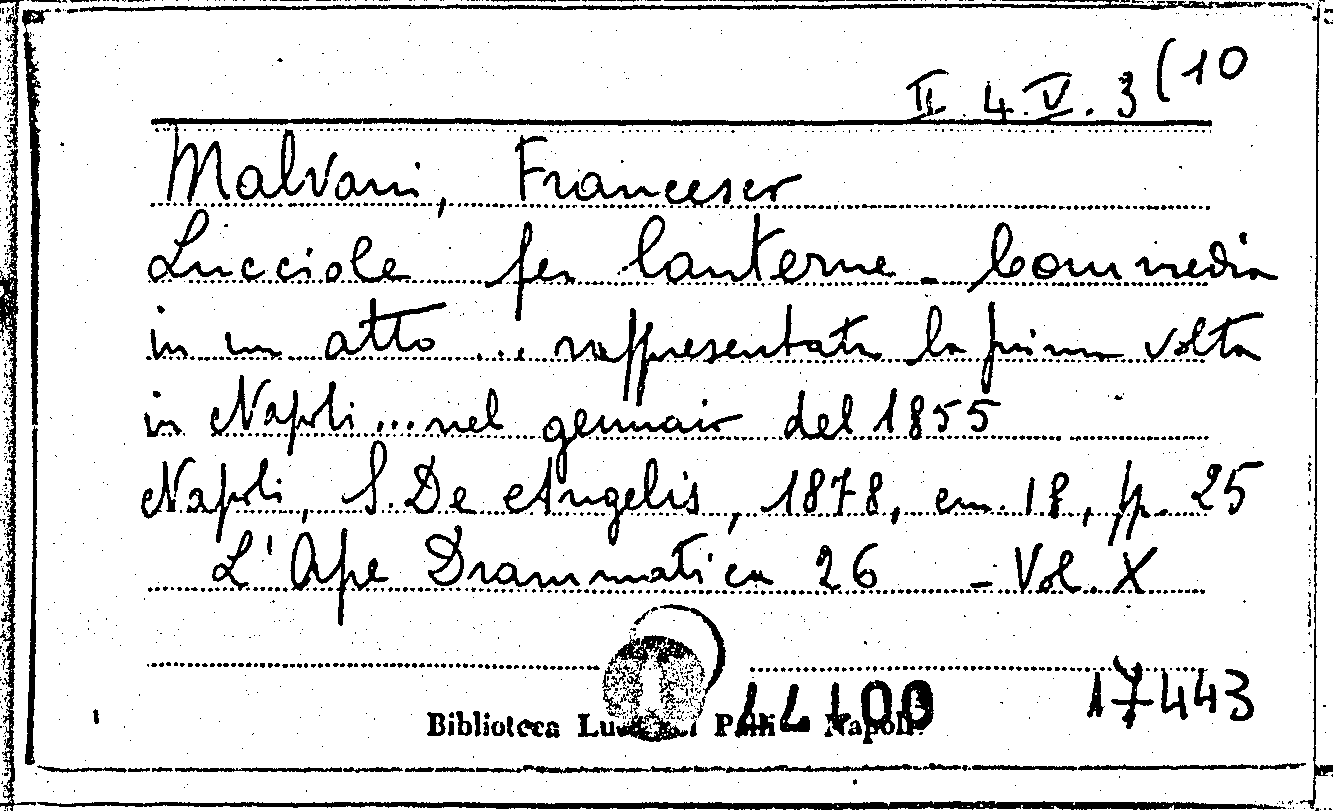 II. 4. V. 3 (10
Malvani, Francesco
Lucciole per lanterne - Commedia
in un atto ... rappresentata la prima volta
in Napoli ... nel gennaio del 1855
Napoli, S. De Angelis, 1878, cm. 18, pp. 25
L'Ape Drammatica 26 - Vol. X
17443
Biblioteca Napoli